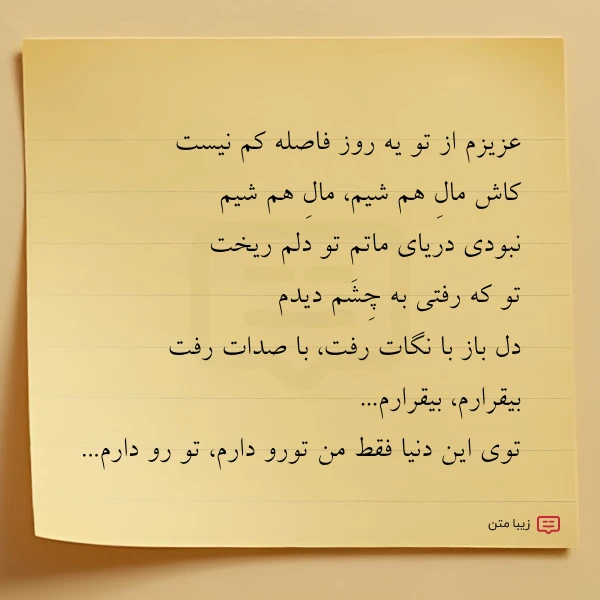 عزیزم از تو یه روز فاصله کم نیست
کاش مالِ هم شیم، مالِ هم شیم
نبودی دریای ماتم تو دلم ریخت
تو که رفتی به چِشَم دیدم
دل باز با نگات رفت، با صدات رفت
بیقرارم، بیقرارم...
توی این دنیا فقط من تورو دارم، تو رو دارم...
زیبا متن